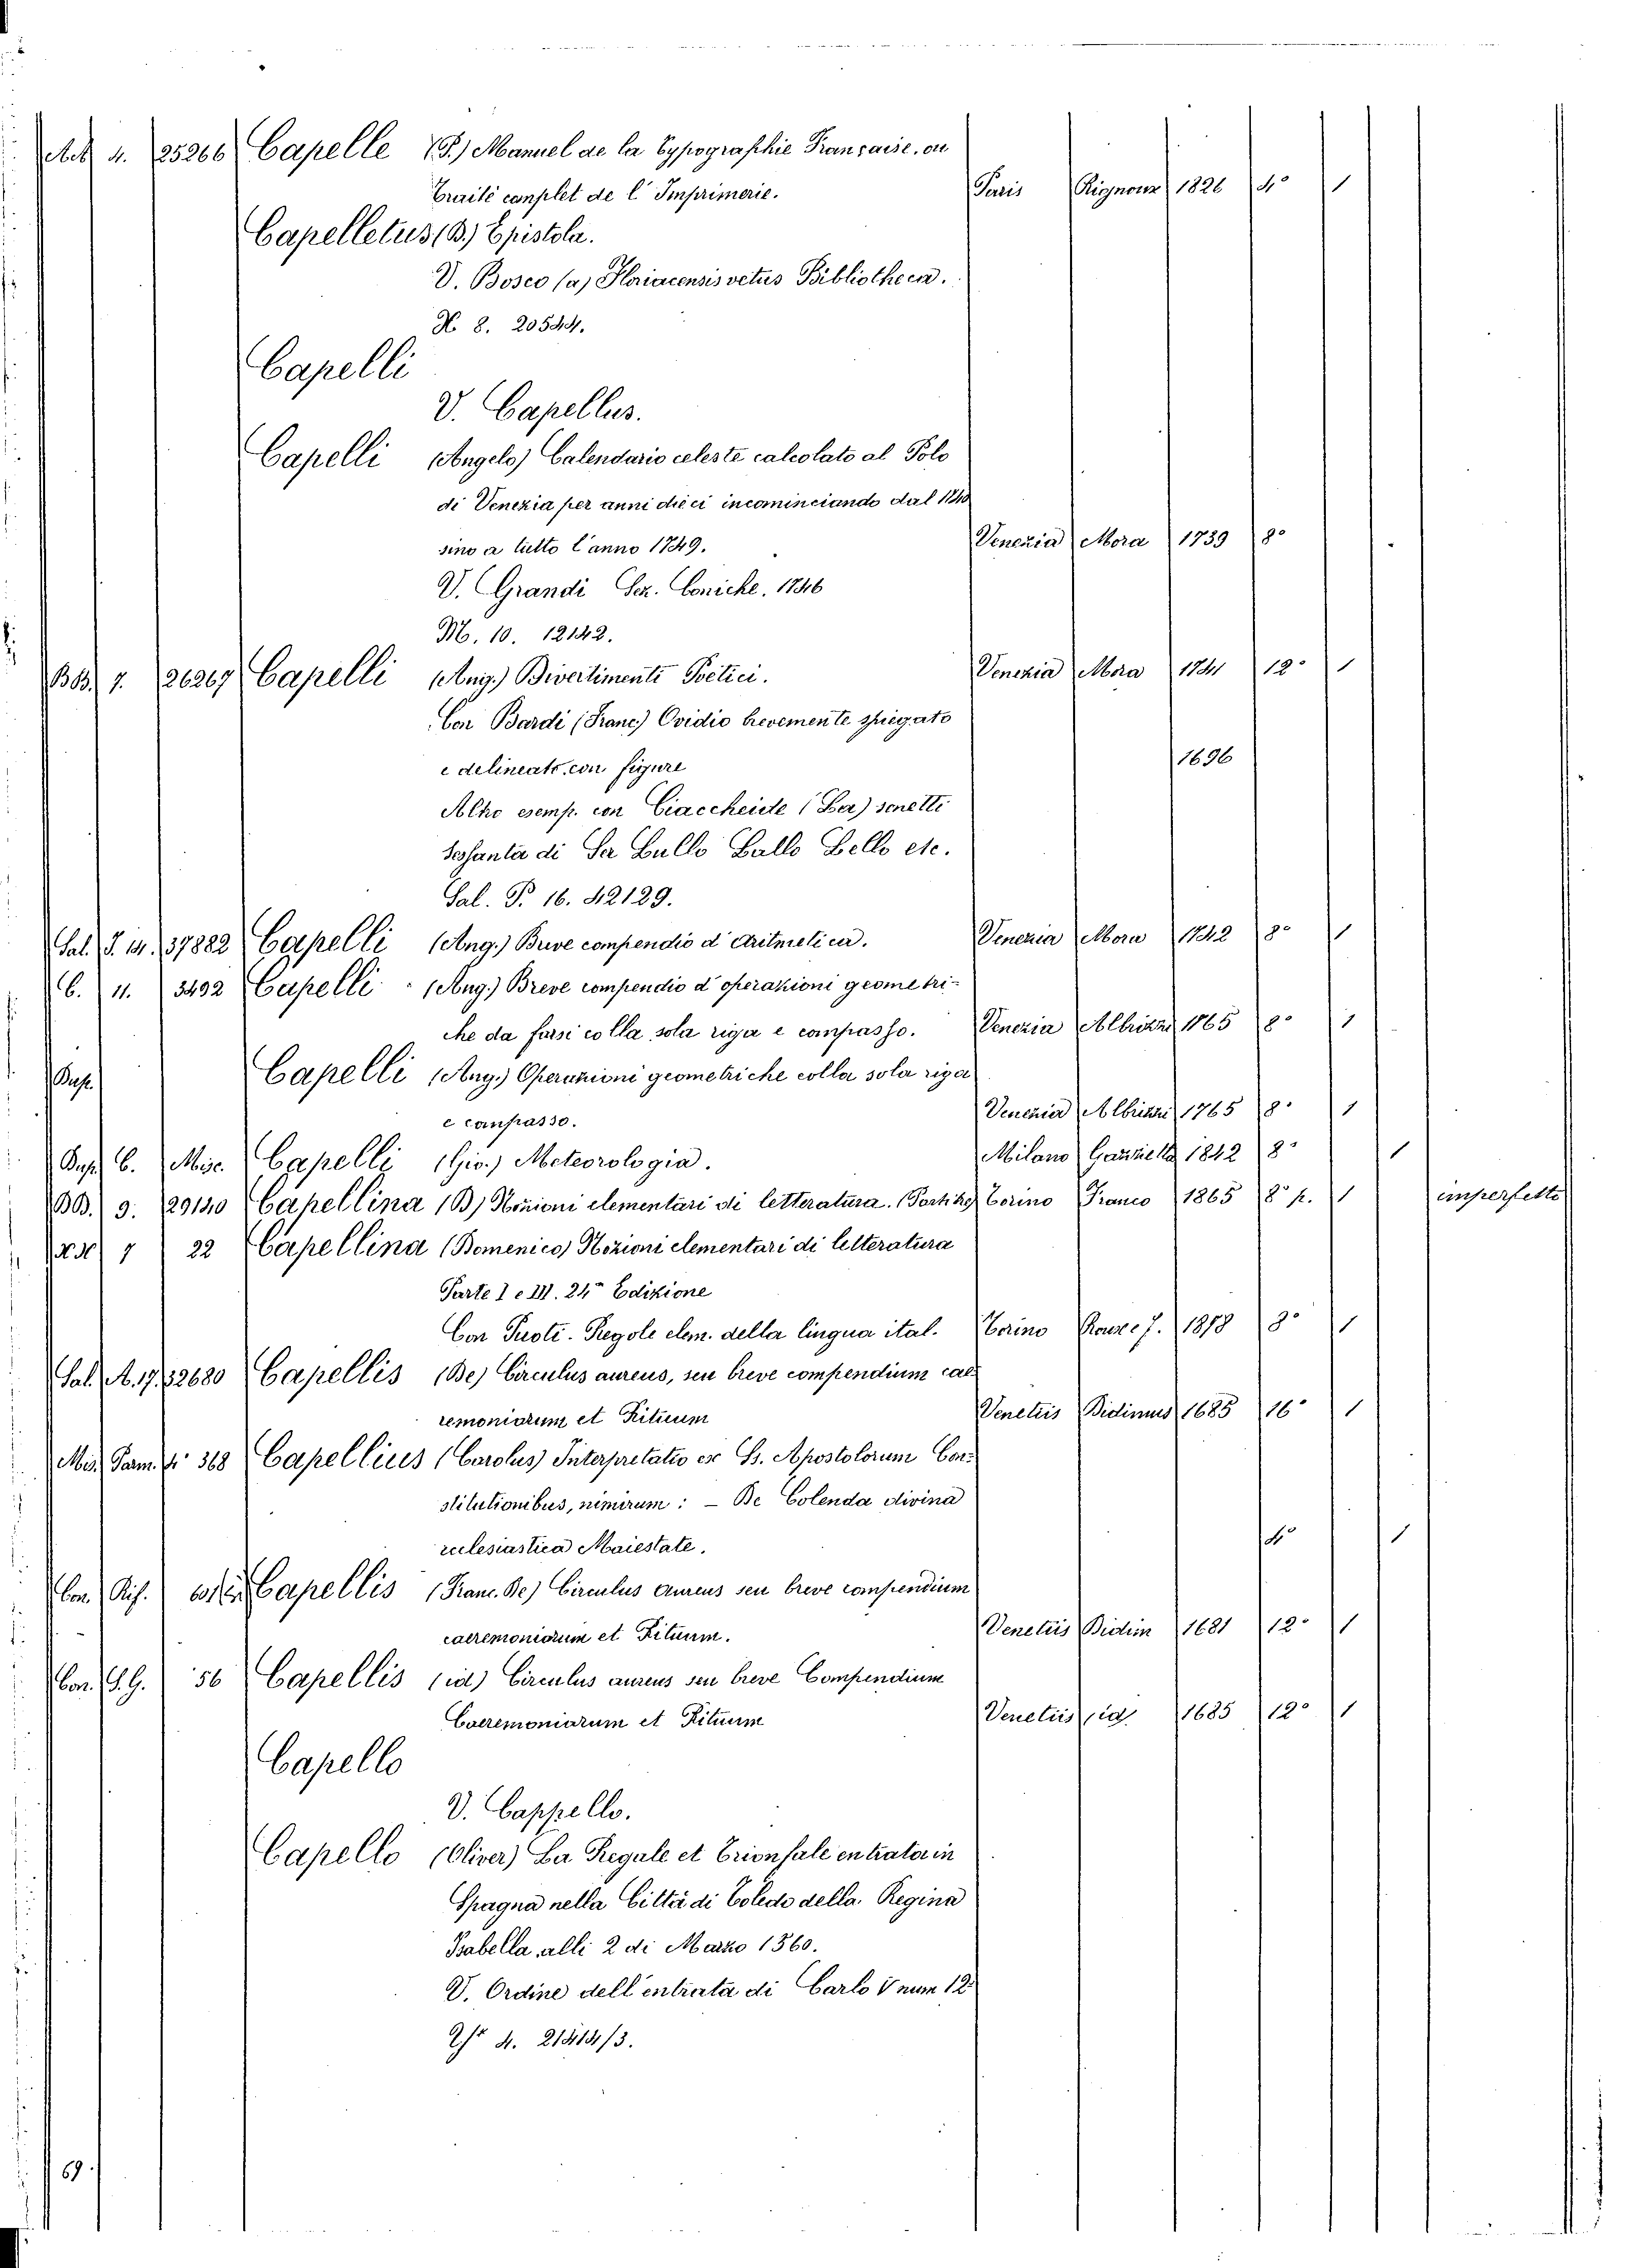 4. 25266 Capelle (P.) Manuel de la Typographie Française, ou
Traité complet de l'Imprimerie. Paris Rignoux 1826 4° 1
Capelletus (B.) Epistola.
V. Bosco (a) Floriacensis vetus Bibliotheca.
N. 8. 20544.
Capelli
V. Capellus.
Capelli (Angelo) Calendario celeste calcolato al Polo
di Venezia per anni dieci incominciando dal 1740
sino a tutto l'anno 1749. Venezia Mora 1739 8°
V. Grandi Sez. Coniche. 1746
M. 10. 12142.
BB. 7. 26267 Capelli (Ang.) Divertimenti Poetici. Venezia Mora 1741 12° 1
Con Bardi (Franc) Ovidio brevemente spiegato
e delineato con figure 1696
Altro esemp. con Ciaccheide (La) sonetti
Sessanta di Ser Lullo Lallo Lello etc.
Sal. P. 16. 42129.
Sal. J. 14. 37882 Capelli (Ang.) Breve compendio d'Aritmetica. Venezia Mora 1742 8° 1
C. 11. 3492 Capelli (Ang.) Breve compendio d'operazioni geometri-
che da farsi colla sola riga e compasso. Venezia Albrizzi 1765 8° 1
Capelli (Ang.) Operazioni geometriche colla sola riga
e compasso. Venezia Albrizzi 1765 8° 1
C. Misc. Capelli (Gio.) Meteorologia. Milano 1842 8° 1
BB. 9. 29140 Capellina (D) Nozioni elementari di letteratura. Torino Franco 1865 8° p. 1 imperfetto
7 22 Capellina (Domenico) Nozioni elementari di letteratura
Parte I e III. 24ª Edizione
Con Puoti. Regole elem. della lingua ital. Torino 1878 8° 1
Sal. A. 17. 32680 Capellis (De) Circulus aureus, seu breve compendium cae-
remoniarum et Rituum Venetiis Bidinus 1685 16° 1
Mis. Parm. 4° 368 Capellius (Carolus) Interpretatio ex SS. Apostolorum Con-
stitutionibus, nimirum: - De Colenda divina
ecclesiastica Maiestate. 4° 1
Con. Rif. Capellis (Franc. De) Circulus aureus seu breve compendium
caeremoniarum et Rituum. Venetiis Bidin 1681 12° 1
Con. S. G. 56 Capellis (id) Circulus aureus seu breve Compendium
Caeremoniarum et Rituum Venetiis id. 1685 12° 1
Capello
V. Cappello.
Capello (Oliver) La Regale et Trionfale entrata in
Spagna nella Città di Toledo della Regina
Isabella, alli 2 di Marzo 1560.
V. Ordine dell'entrata di Carlo V num 12
4. 21414/3.
69.